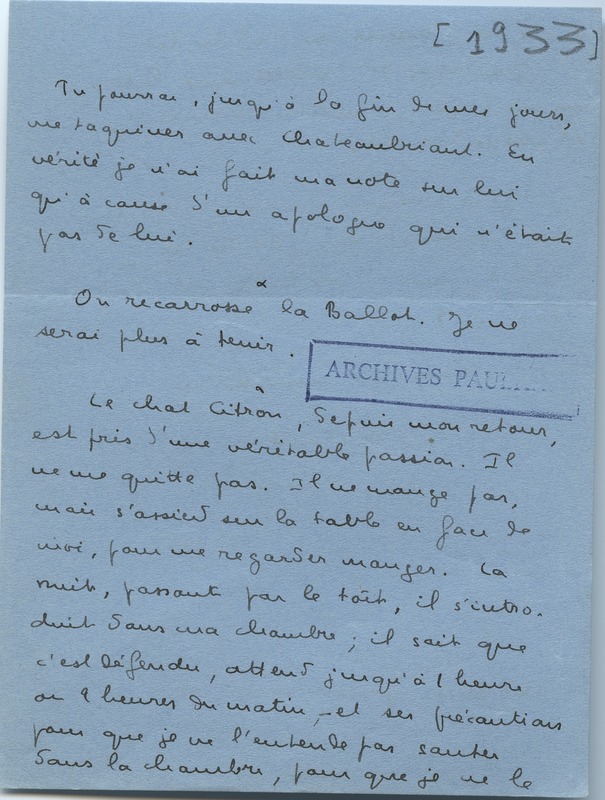 [1933]
Tu pourras, jusqu'à la fin de mes jours,
me taquiner avec Chateaubriant. En
vérité je n'ai fait ma note sur lui
qu'à cause d'un apologue qui n'était
pas de lui.
On recarrosse la Ballot. Je ne
serai plus à tenir.
ARCHIVES PAUL
Le chat Citrôn, depuis mon retour,
est pris d'une véritable passion. Il
ne me quitte pas. Il ne mange pas,
mais s'assied sur la table en face de
moi, pour me regarder manger. La
nuit, passant par le toît, il s'intro-
duit dans ma chambre ; il sait que
c'est défendu, attend jusqu'à 1 heure
ou 2 heures du matin, – et ses précautions
pour que je ne l'entende pas sauter
dans la chambre, pour que je ne le